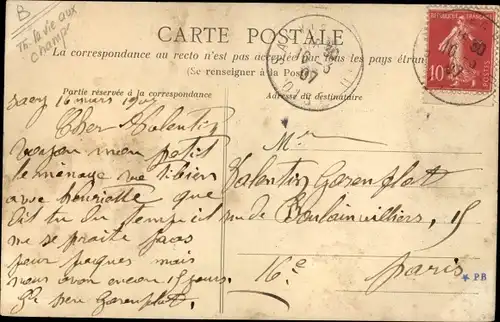 B
Th. la vie aux
champs
CARTE POSTALE
La correspondance au recto n'est pas acceptée par tous les pays étran
(Se renseigner à la Poste
Partie réservée à la correspondance
Adresse du destinataire
16 mars 1907
Cher Valentin
mon petit
ménage va bien
avec henriette que
dit tu du temps il
ne se praite pas
pour paques mais
nous avon encore 15 jours
Garenflot
Mr
Valentin Garenflot
rue de Boulainvilliers, 15
16e
paris
* PB
REPUBLIQUE FRANÇAISE
10
POSTES